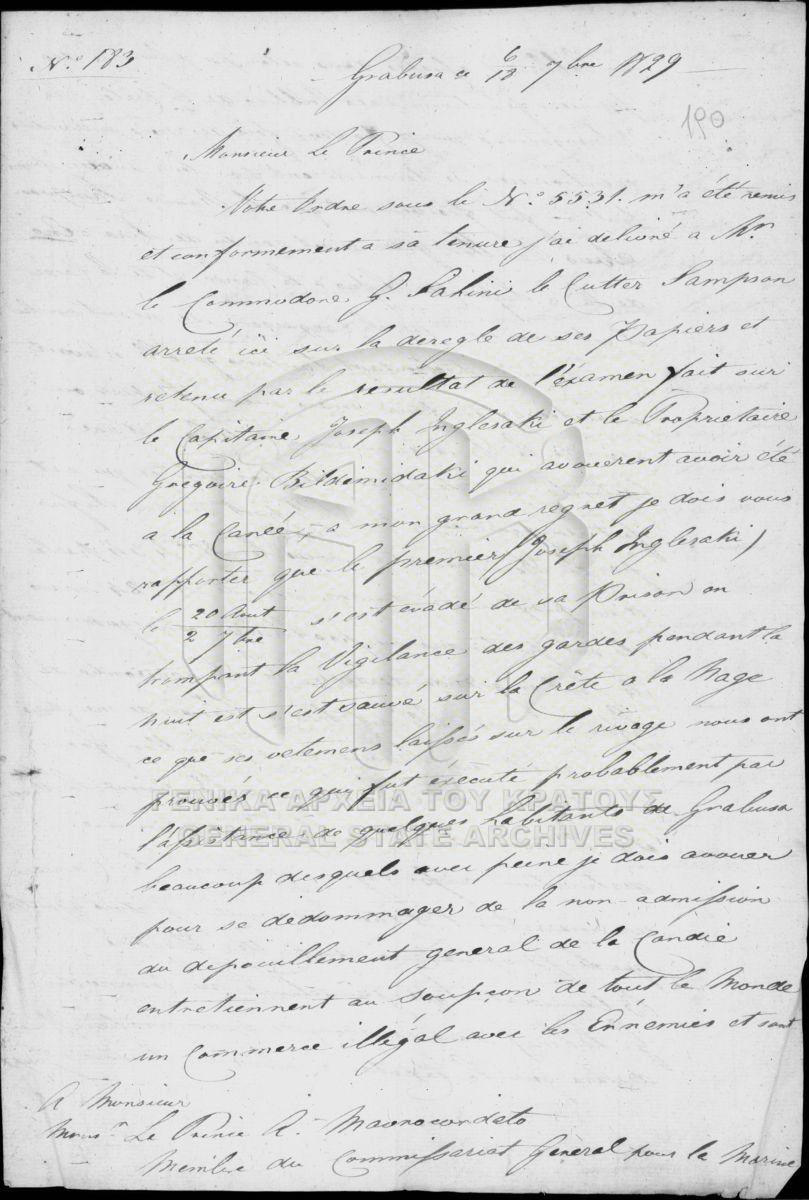 No 183
Grabusa ce 6/18 7bre 1829
190
Monsieur Le Prince
Votre Ordre sous le No 5531. m'a été remis
et conformement a sa tenure j'ai delivré a Mr
le Commodore G. Sahini le Cutter Sampson
arreté içi sur la deregle de ses Papiers et
retenu par le resultat de l'éxamen fait sur
le Capitaine Joseph Inglesaki et le Proprietaire
Gregoire qui avouerent avoir été
a la Canée, a mon grand regret je dois vous
rapporter que le premier (Joseph Inglesaki)
le 20 Aout/2 7bre s'est évadé de sa Prison en
trompant la Vigilance des gardes pendant la
nuit est s'est sauvé sur la Crête a la Nage
ce que ses vetemens laissés sur le rivage nous ont
prouvés ce qui fut éxécuté probablement par
l'assistance de quelques habitants de Grabusa
beaucoup desquels avec peine je dois avouer
pour se dedommager de la non-admission
du depouillement general de la Candie
entretiennent au soupçon de tout le Monde
un Commerce illégal avec les Ennemies et sont
A Monsieur
Monsr Le Prince A. Mavrocordato
Membre du Commissariat General pour la Marine
ΓΕΝΙΚΑ ΑΡΧΕΙΑ ΤΟΥ ΚΡΑΤΟΥΣ
GENERAL STATE ARCHIVES